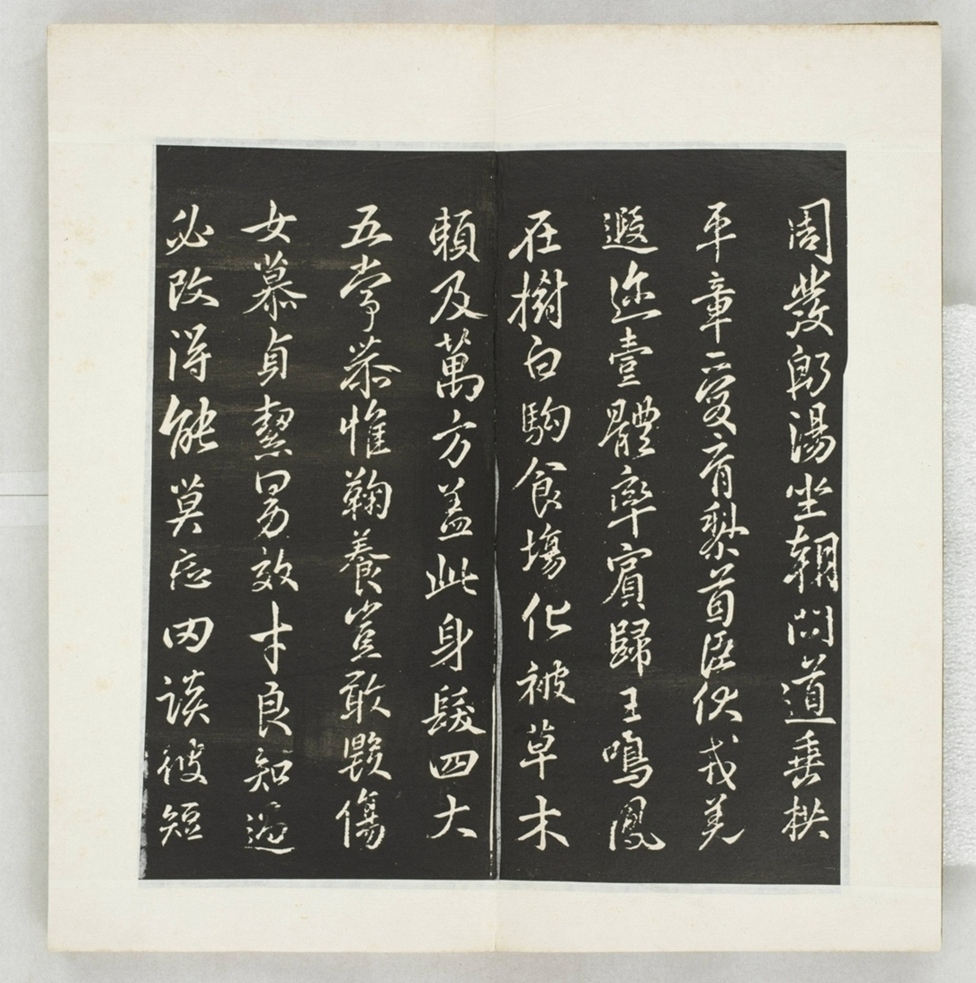 周發殷湯坐朝問道垂拱
平章愛育黎首臣伏戎羌
遐迩壹體率賓歸王鳴鳳
在樹白駒食場化被草木
頼及萬方盖此身髮四大
五常恭惟鞠養豈敢毀傷
女慕貞絜男效才良知過
必改得能莫忘罔談彼短